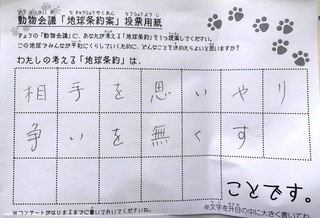 動物会議「地球条約案」投票用紙
きょうの「動物会議」に、あなたが考える「地球条約」を1つ提案してください。
この地球でみんなが平和にくらしていくために、どんなことを決めたらよいと思いますか?
わたしの考える「地球条約」は、
相手を思いやり
争いを無くす
ことです。
※コンサートがはじまるまでに書いておいてください。
※文字を升目の中に大きく書いてね